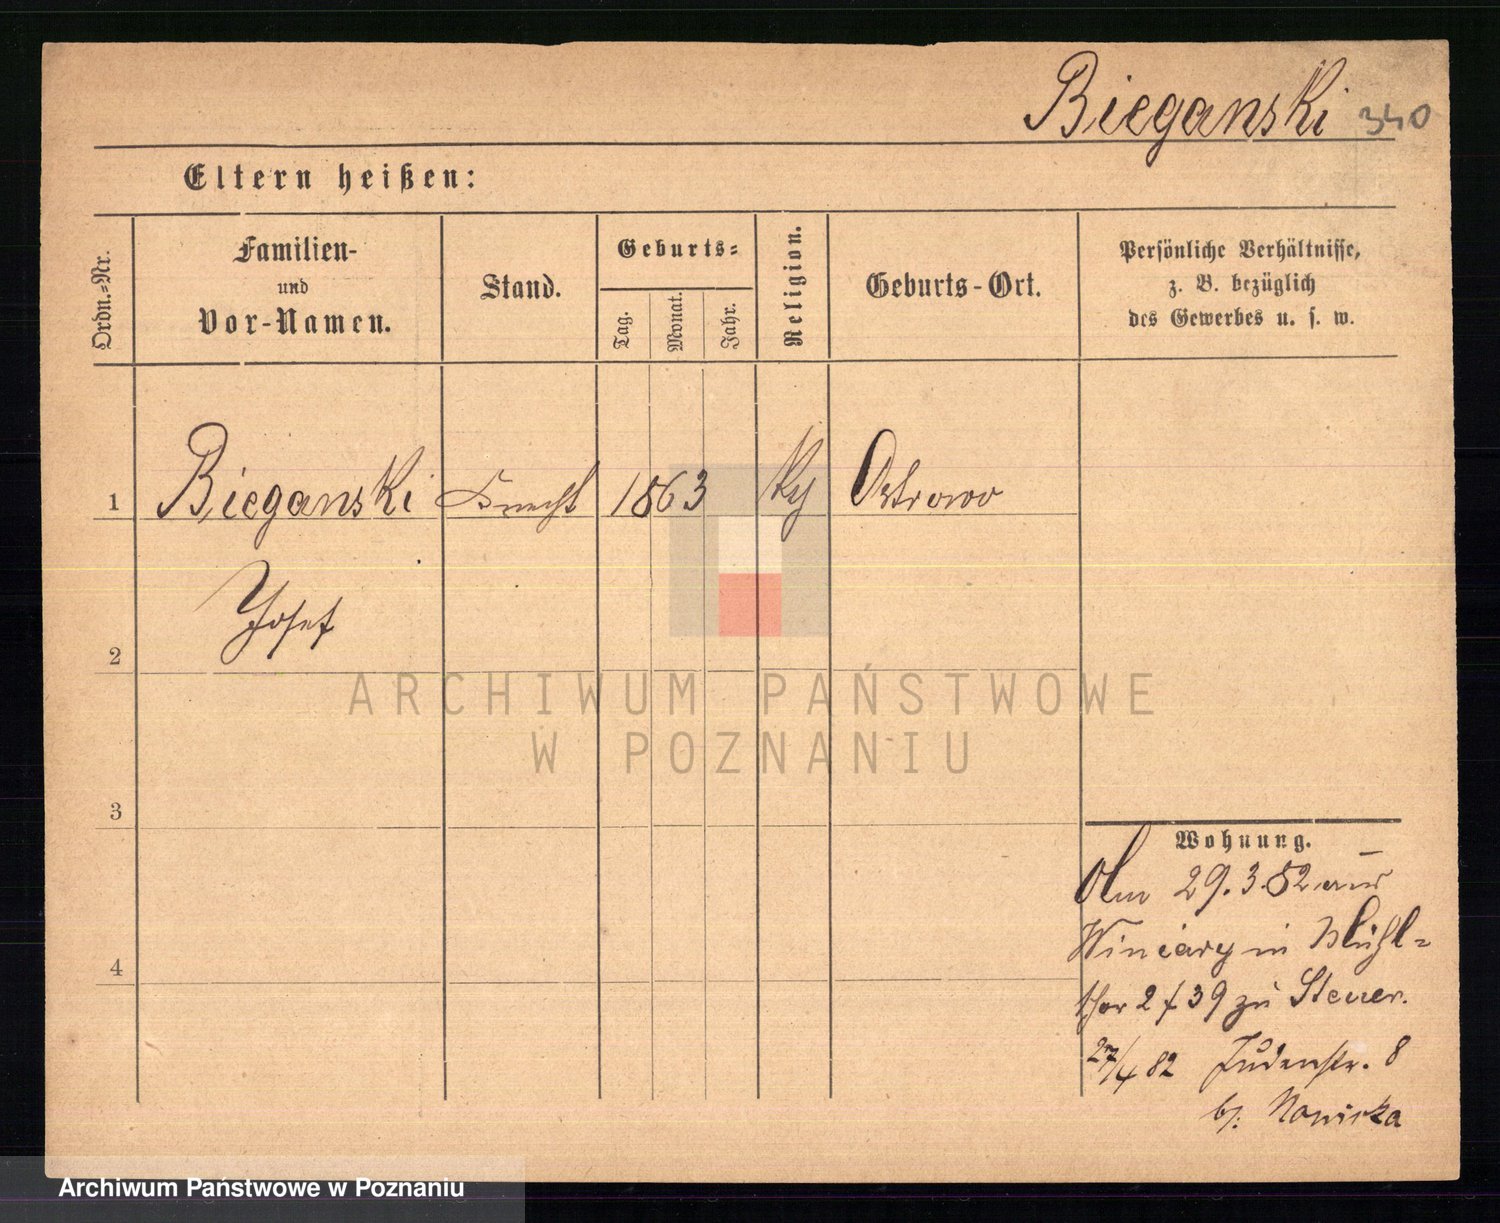 Bieganski 340
Eltern heißen:
Ordn.-Nr.
Familien-
und
Vor-Namen.
Stand.
Geburts-
Tag.
Monat.
Jahr.
Religion.
Geburts-Ort.
Persönliche Verhältnisse,
z. B. bezüglich
des Gewerbes u. s. w.
1 Bieganski Knecht 1863 Ostrowo
Josef
2
3
4
Wohnung.
Am 29.3.82 aus
Winiary in Mühl-
thor 2 39 zu Steuer.
27/4 82 Judenstr. 8
b/: Nowicka
ARCHIWUM PAŃSTWOWE
W POZNANIU
Archiwum Państwowe w Poznaniu